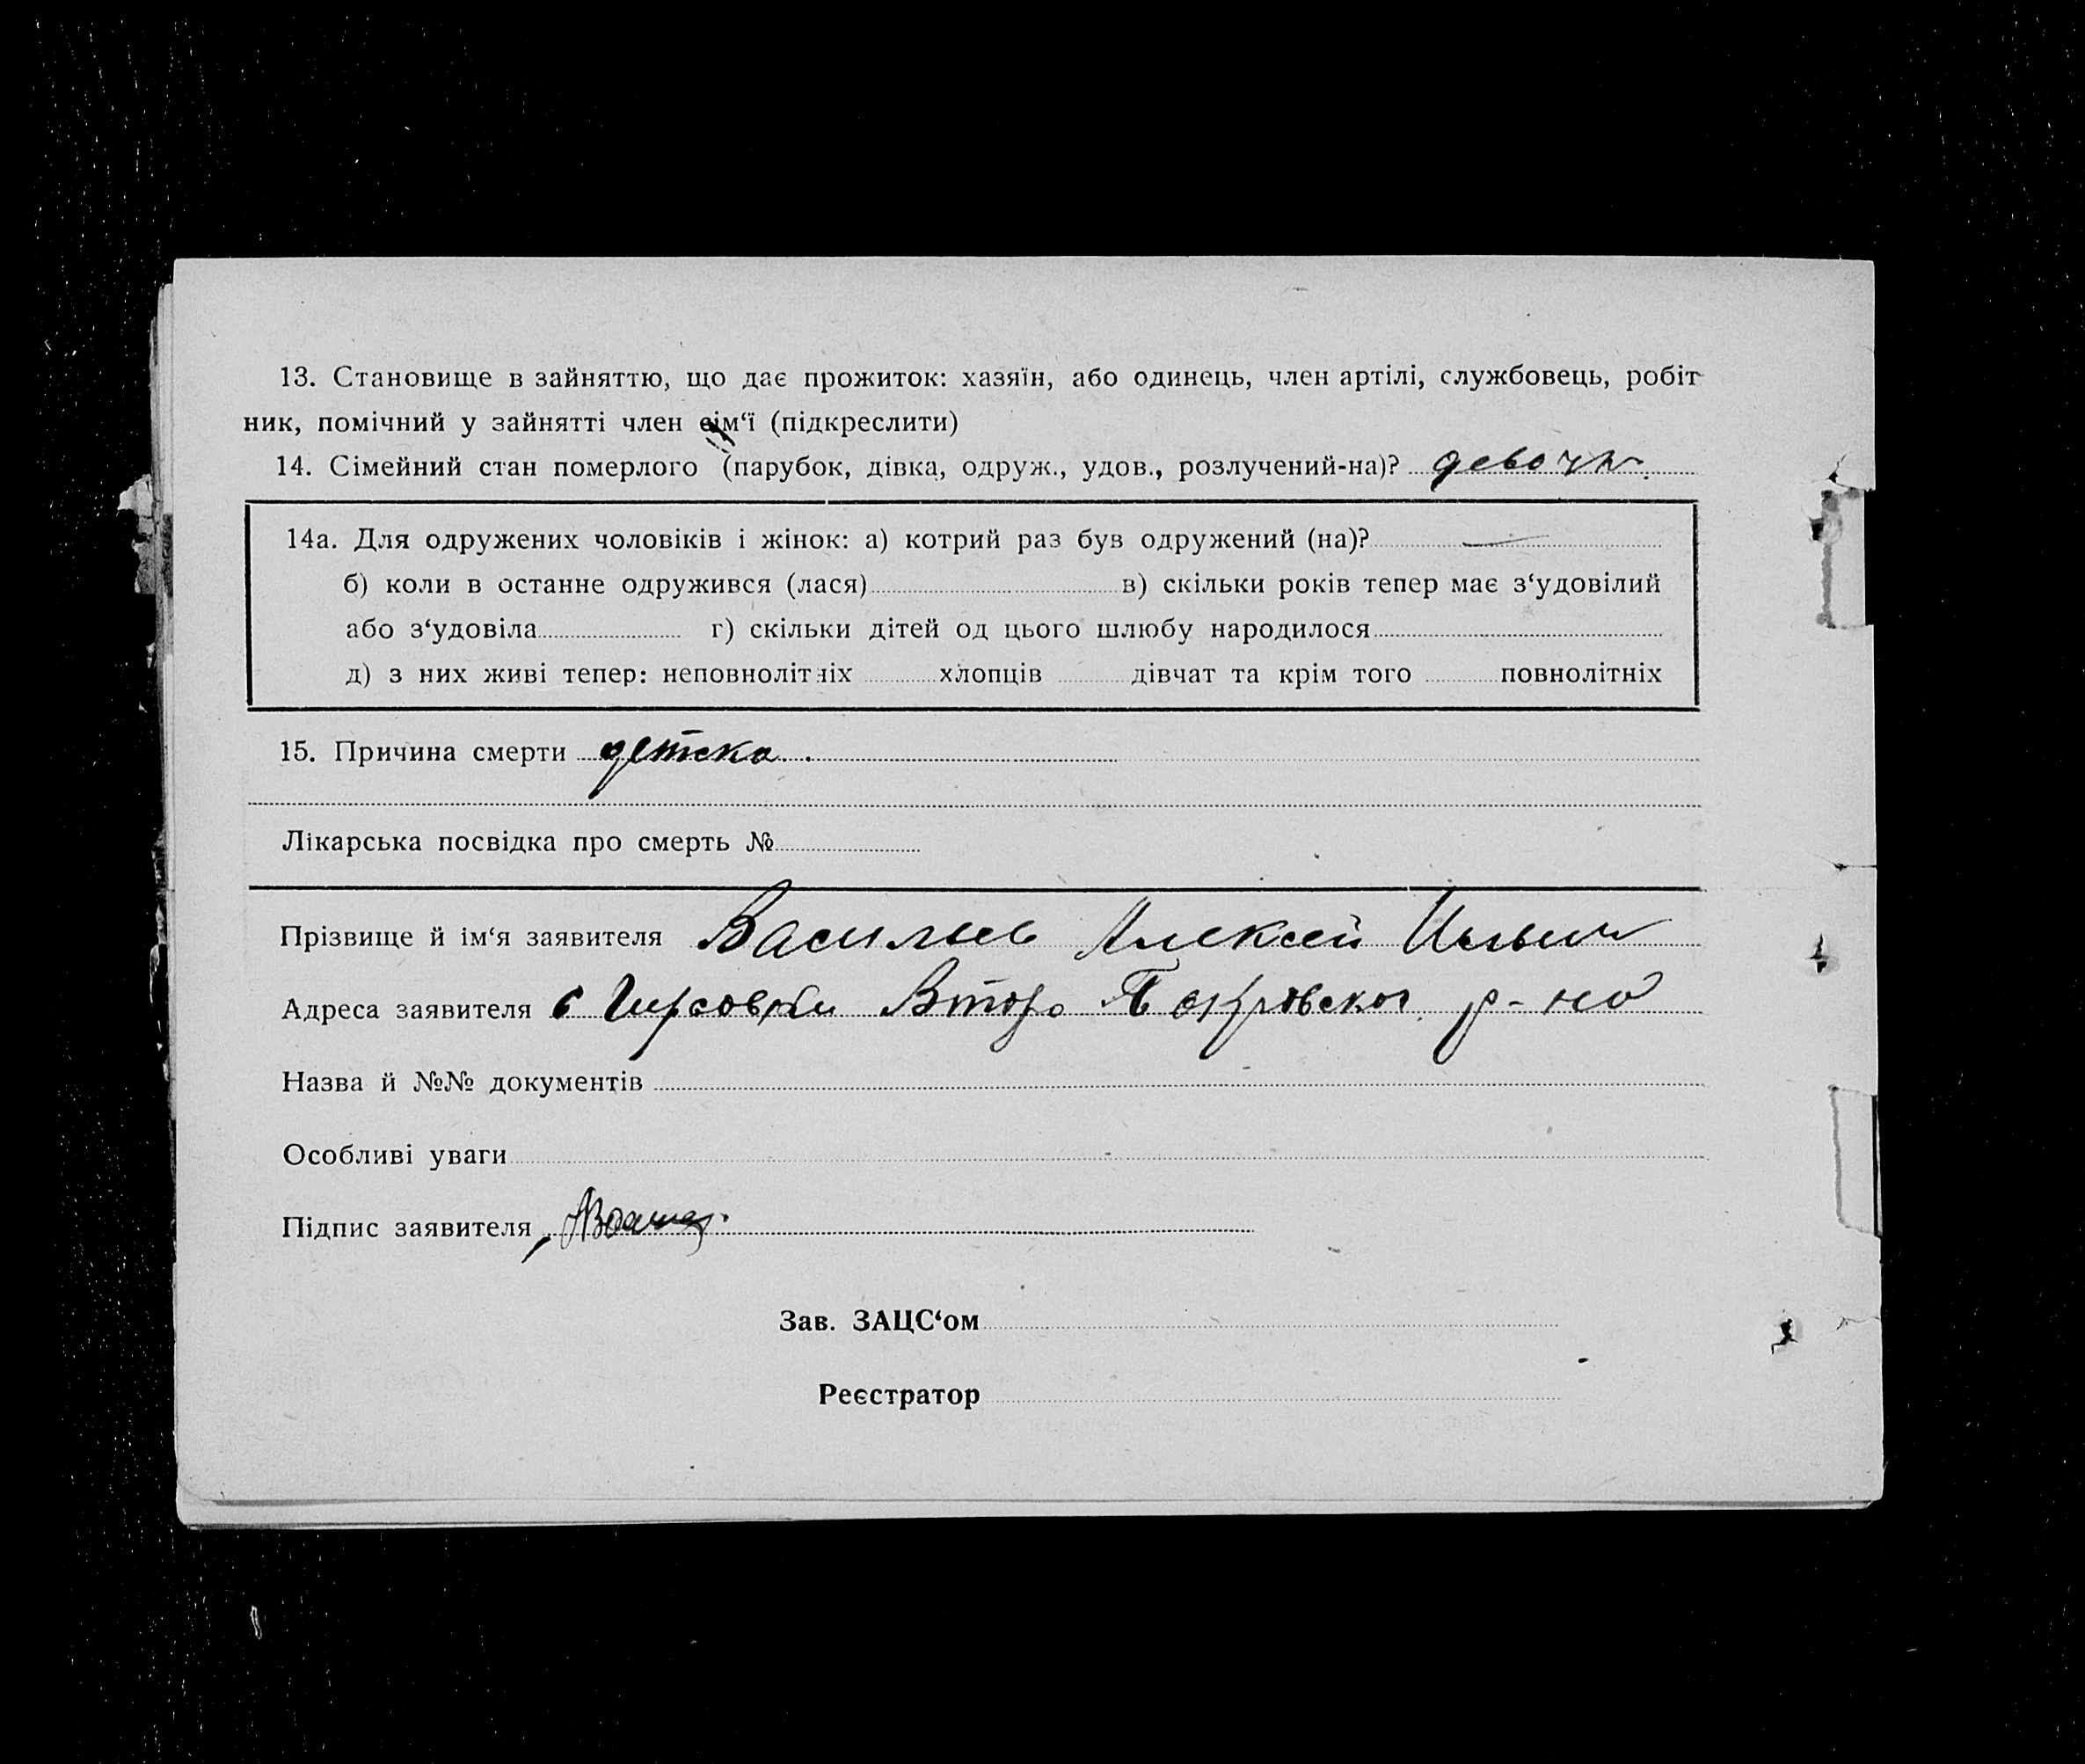 13. Становище в зайняттю, що дає прожиток: хазяїн, або одинець, член артілі, службовець, робіт-
ник, помічний у зайнятті член сім‘ї (підкреслити)
14. Сімейний стан померлого (парубок, дівка, одруж., удов., розлучений-на)? девочк
14а. Для одружених чоловіків і жінок: а) котрий раз був одружений (на)? —
б) коли в останне одружився (лася) в) скільки років тепер має з‘удовілий
або з‘удовіла г) скільки дітей од цього шлюбу народилося
д) з них живі тепер: неповнолітніх хлопців дівчат та крім того повнолітніх
15. Причина смерти детска
Лікарська посвідка про смерть №
Прізвище й ім‘я заявителя Васильев Алексей Ильич
Адреса заявителя с Гирсовки Второ Покровског р-но
Назва й №№ документів
Особливі уваги
Підпис заявителя
Зав. ЗАЦС‘ом
Реєстратор